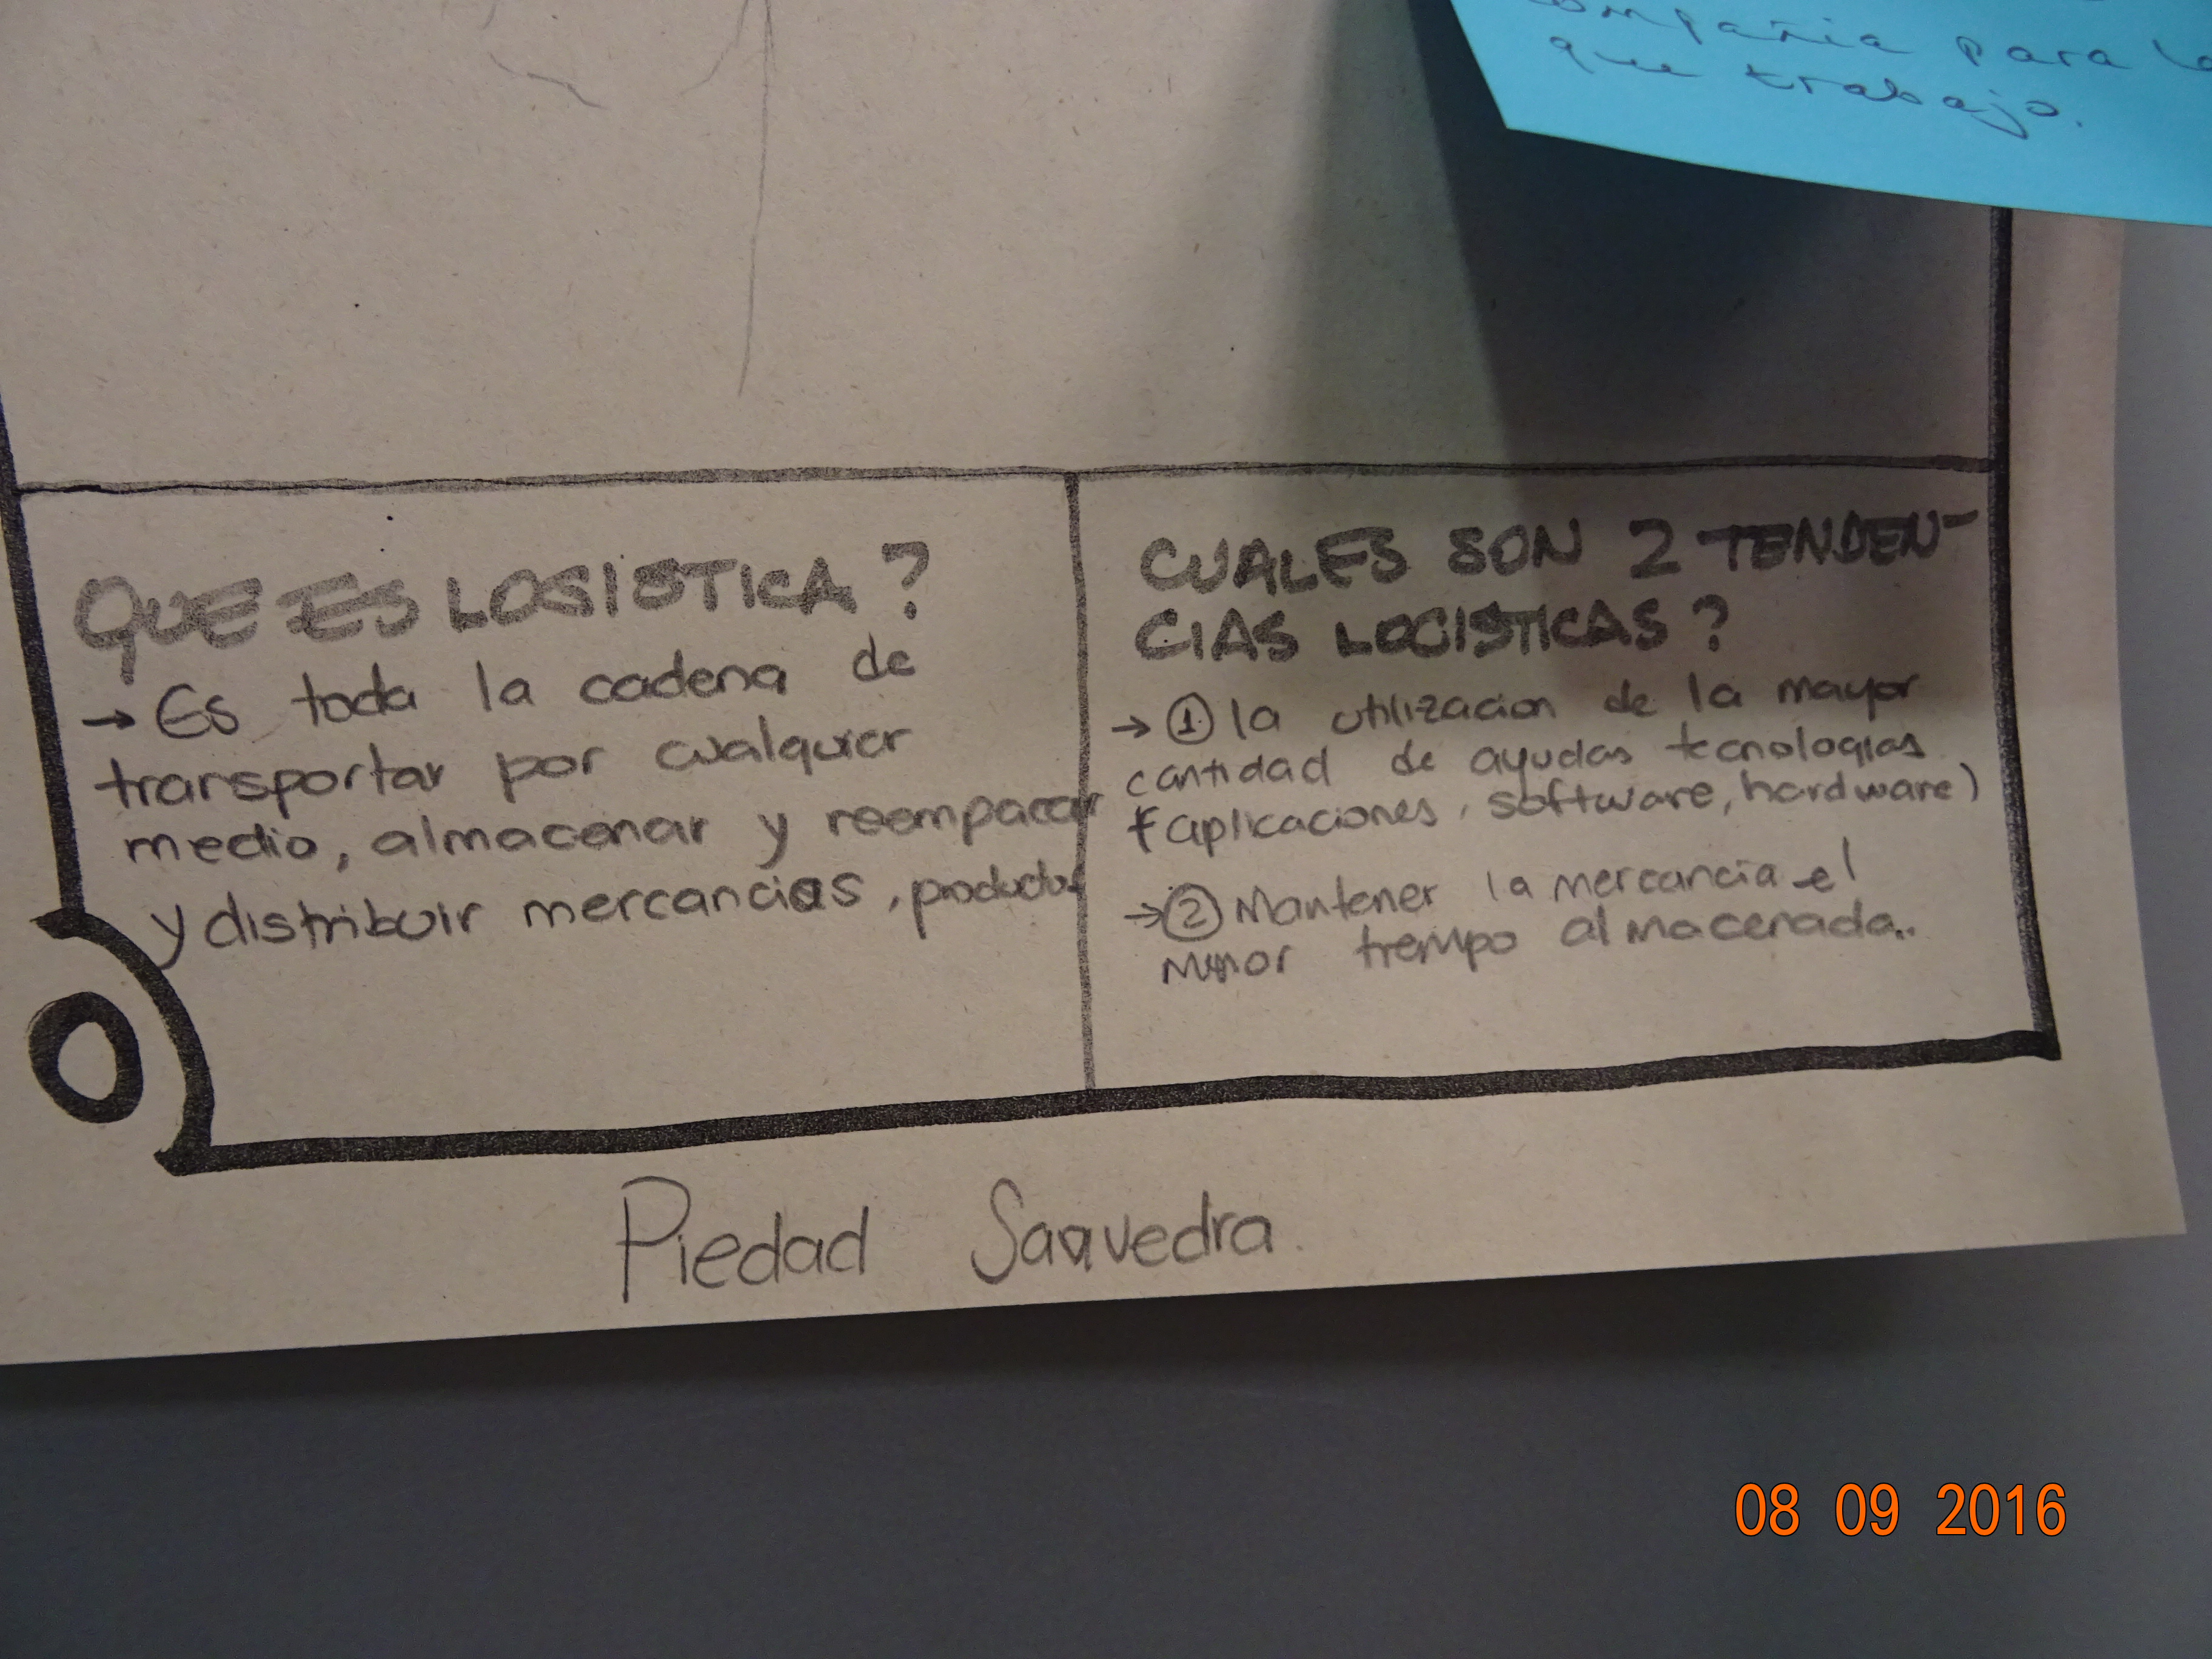 ompañia para la
que trabajo.
QUE ES LOGISTICA?
→ Es toda la cadena de
transportar por cualquier
medio, almacenar y reempacar
y distribuir mercancias, productos
CUALES SON 2 TENDEN-
CIAS LOGISTICAS?
→ ① la utilizacion de la mayor
cantidad de ayudas tecnologias
(aplicaciones, software, hardware)
→ ② Mantener la mercancia el
menor tiempo almacenada..
Piedad Saavedra.
08 09 2016